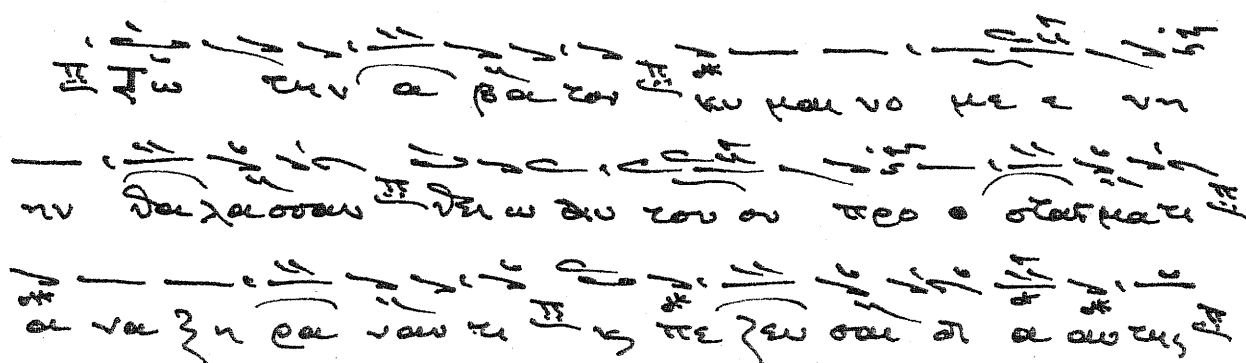 Τω την α βα τον κυ μαι νο με ε νη
ην θα λασσαν θει ω αυ του ου προ ο σταγματι
α να ξη ρα ναν τι ϗ πε ζευ σαι δι α αυ της